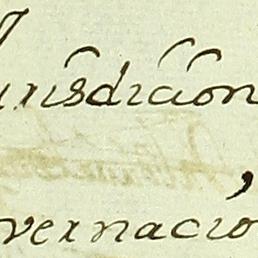 urisdicion
,
vernacio